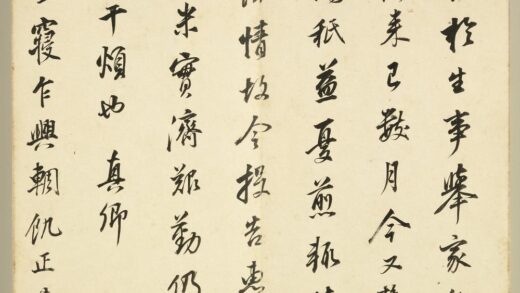 於生事舉家
來已數月今又
祗益憂煎輒
情故令投告惠
米實濟艱勤仍
干煩也 真卿
寢乍興輖飢正